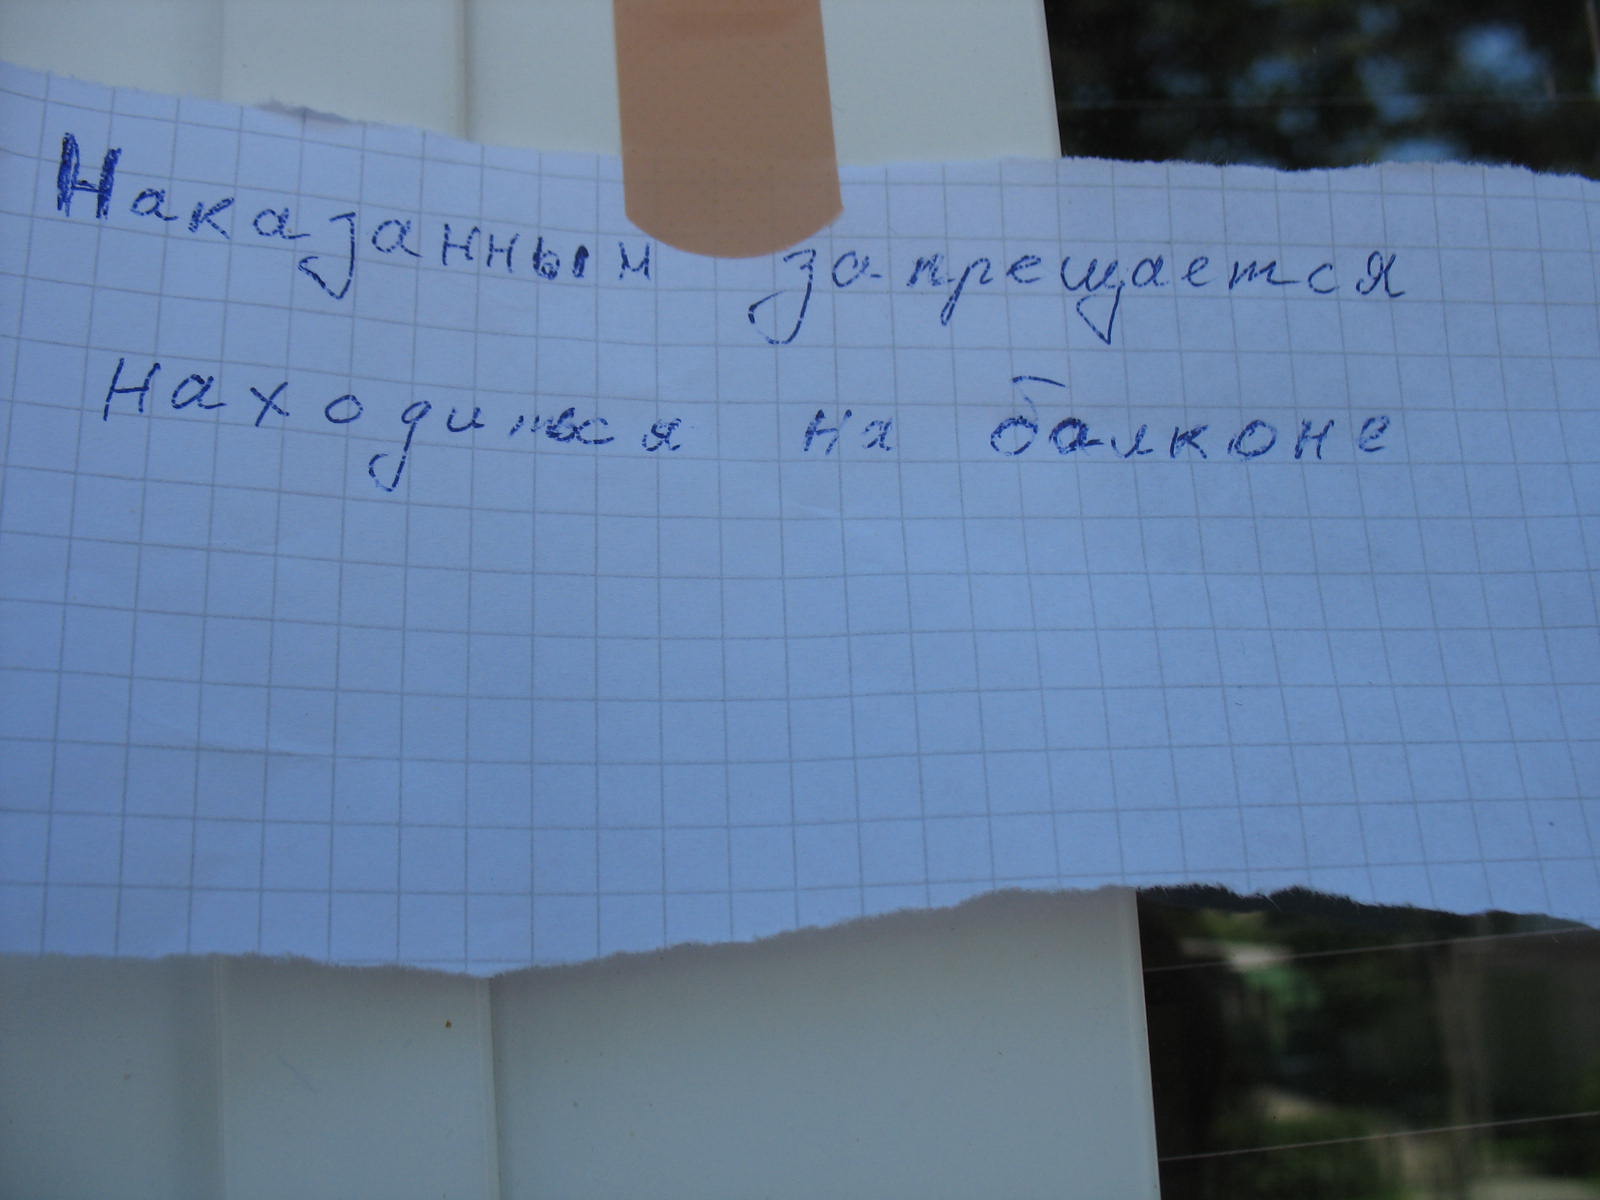 Наказанным запрещается
находиться на балконе